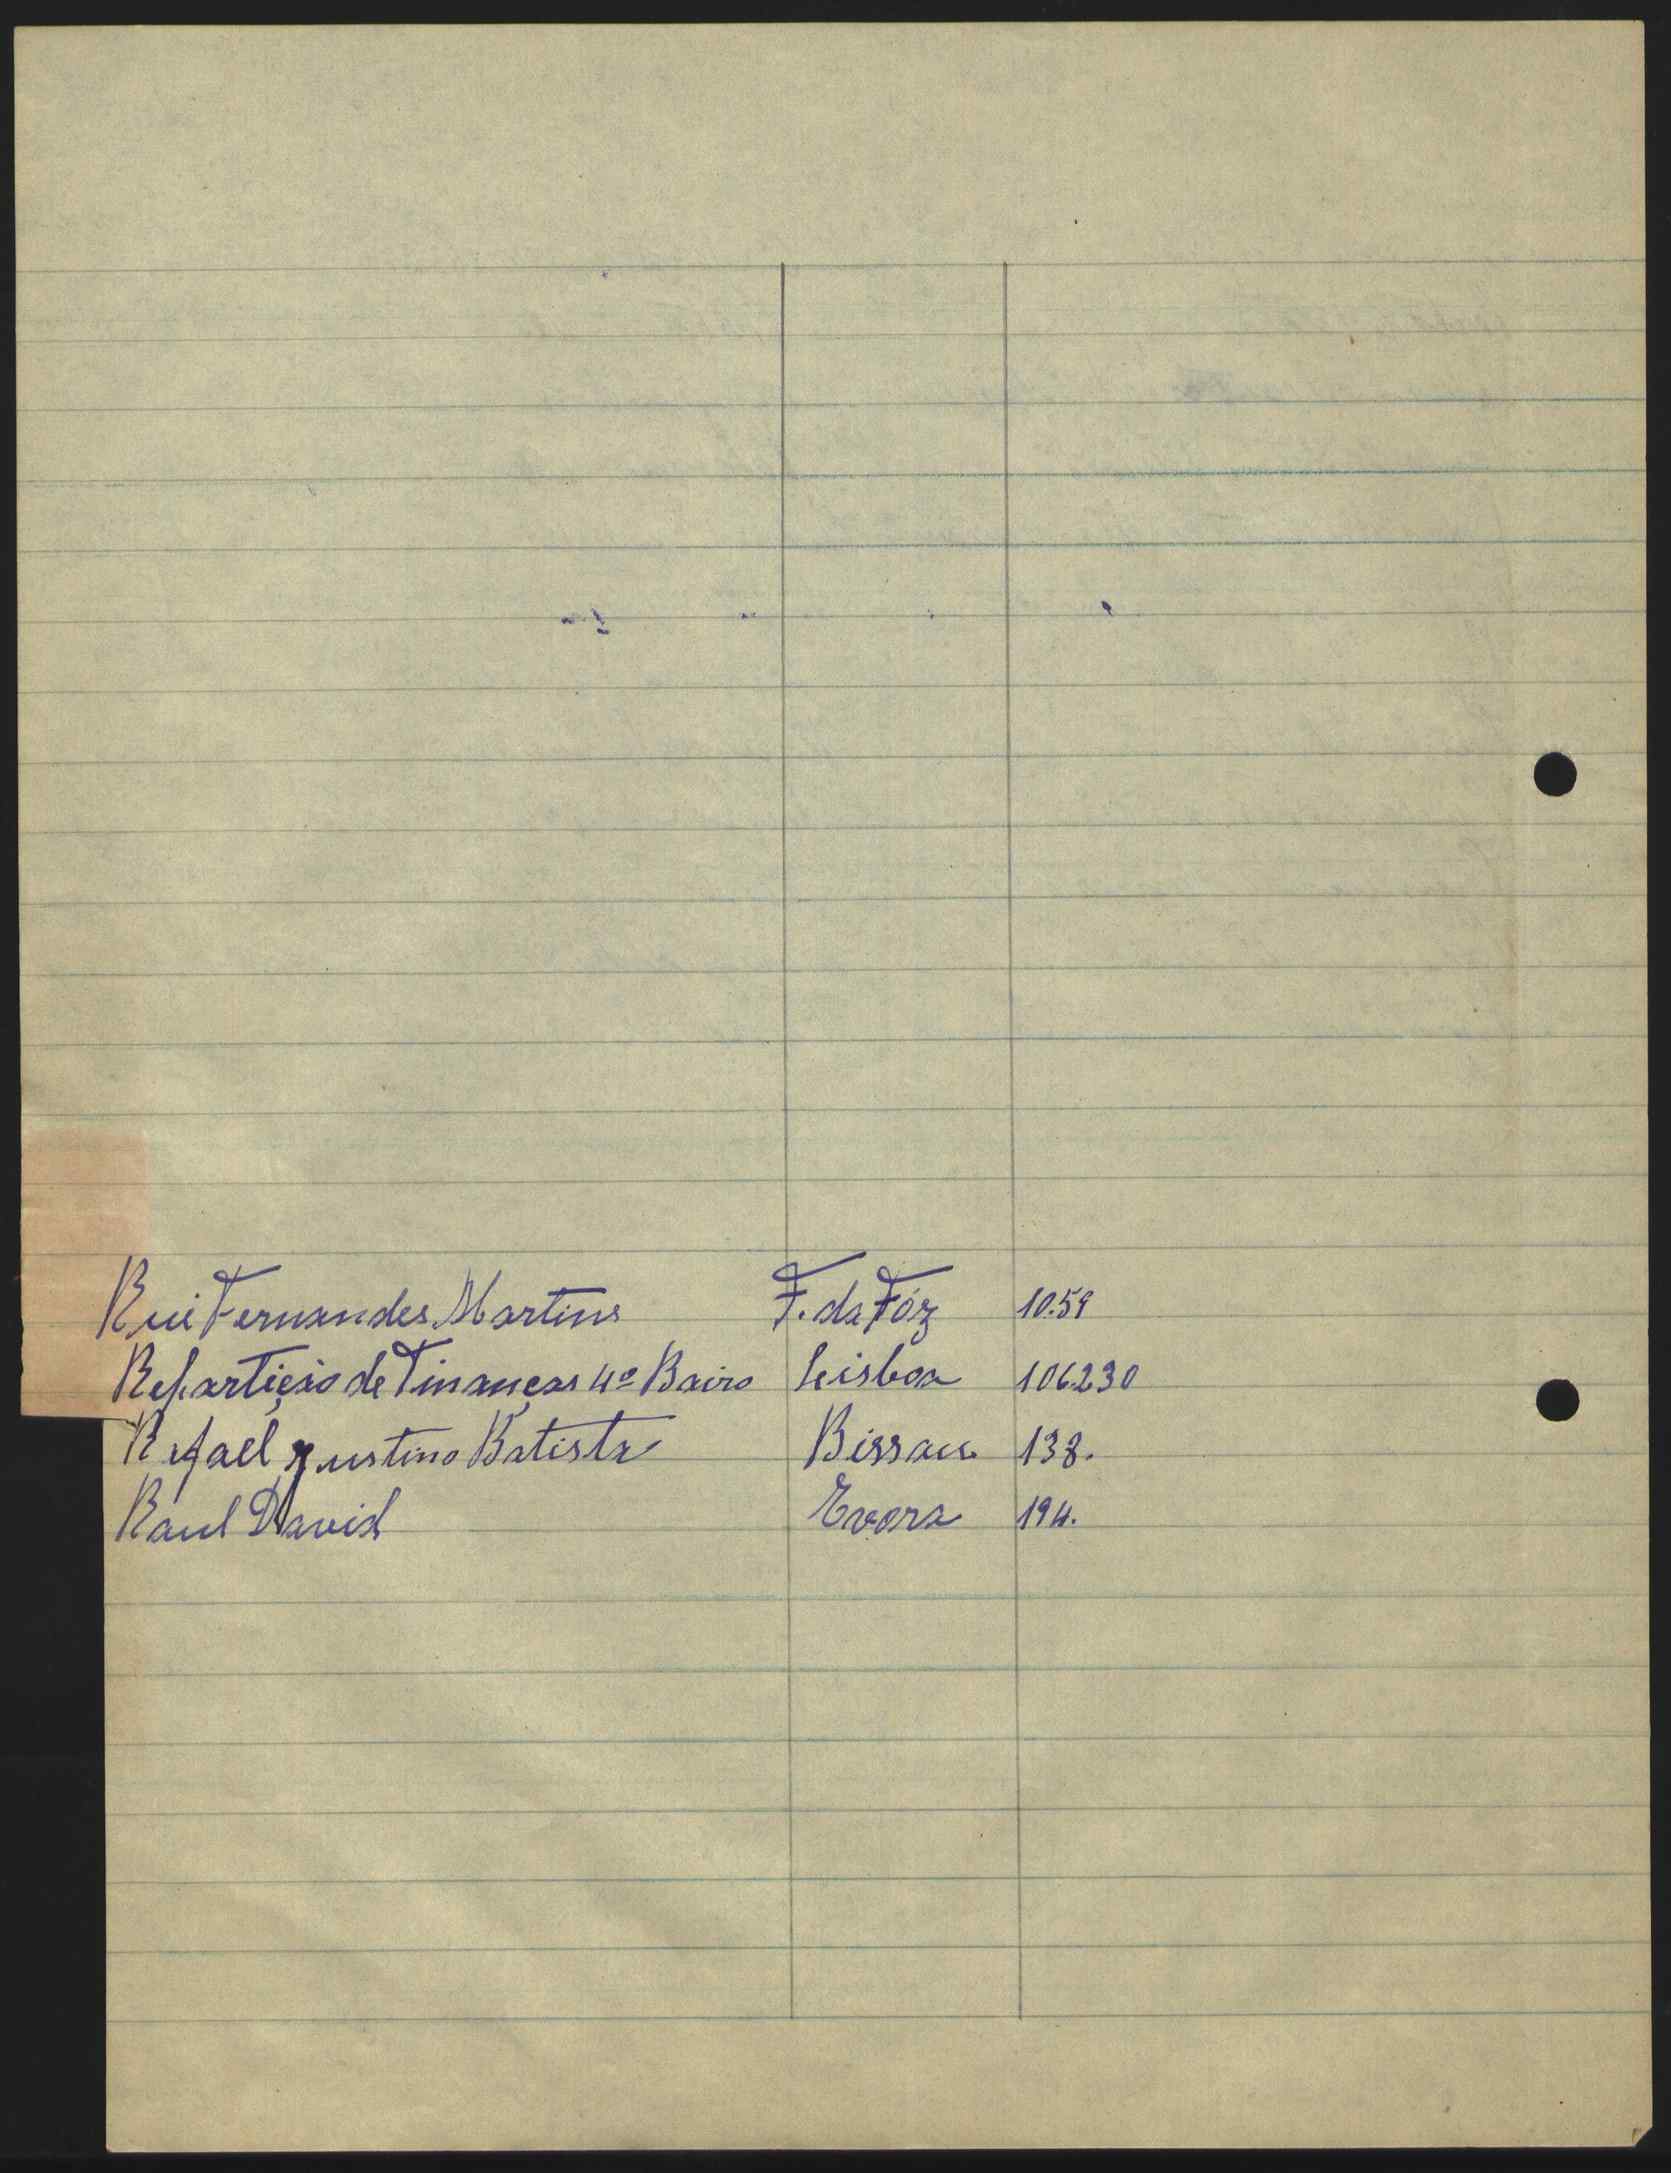 Rui Fernandes Martins F. da Fóz 10.59
Repartição de Finanças 4º Bairo Lisboa 106230
Rafael Justino Batista Bissau 138.
Raul David Evora 194.